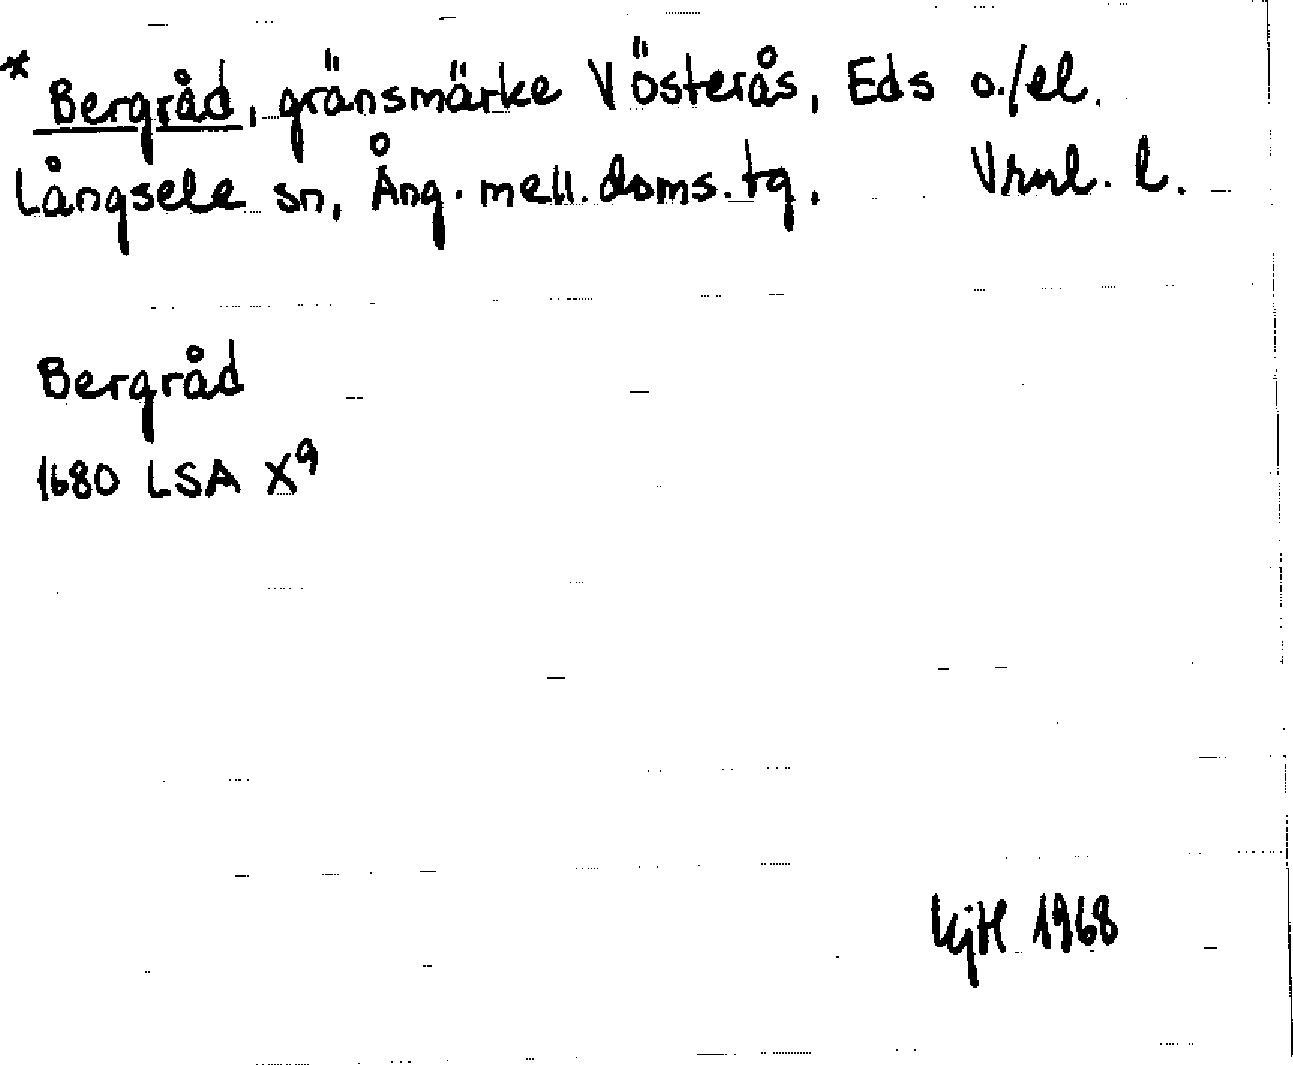 * Bergråd, gränsmärke V Österås, Eds o./el.
Långsele sn, Ång. mell. doms. tg. Vrnl. l.
Bergråd
1680 LSA X9
1968